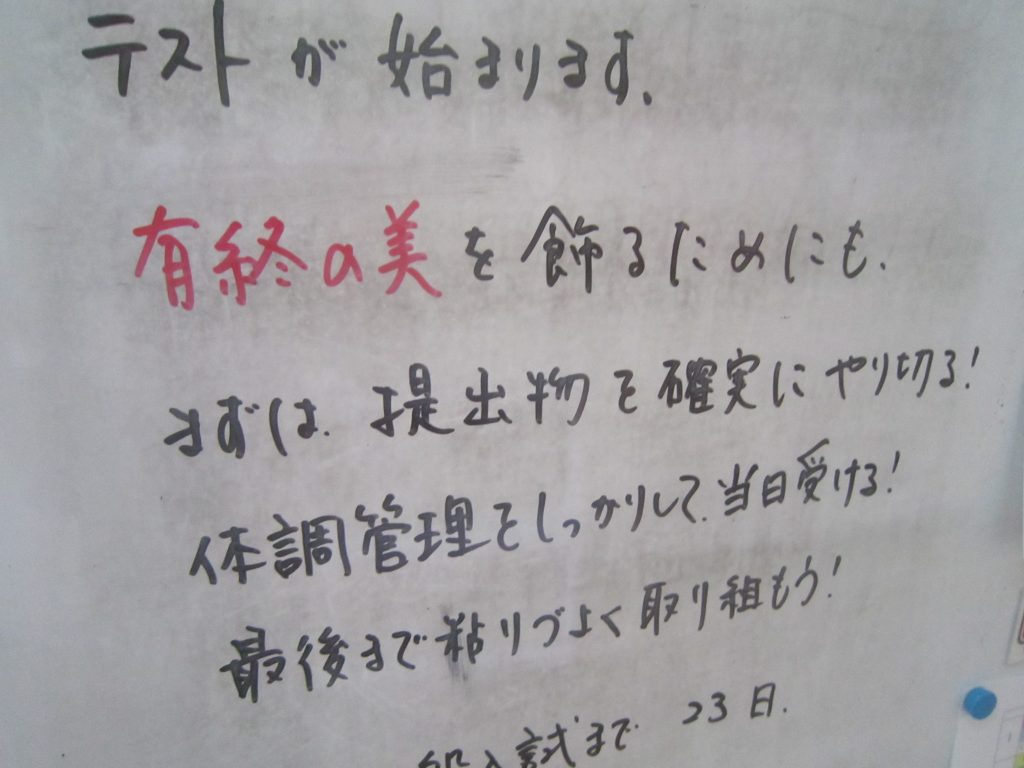 テストが始まります。
有終の美を飾るためにも、
まずは、提出物を確実にやり切る!
体調管理をしっかりして、当日受ける!
最後まで粘りづよく取り組もう!
入試まで 23日.